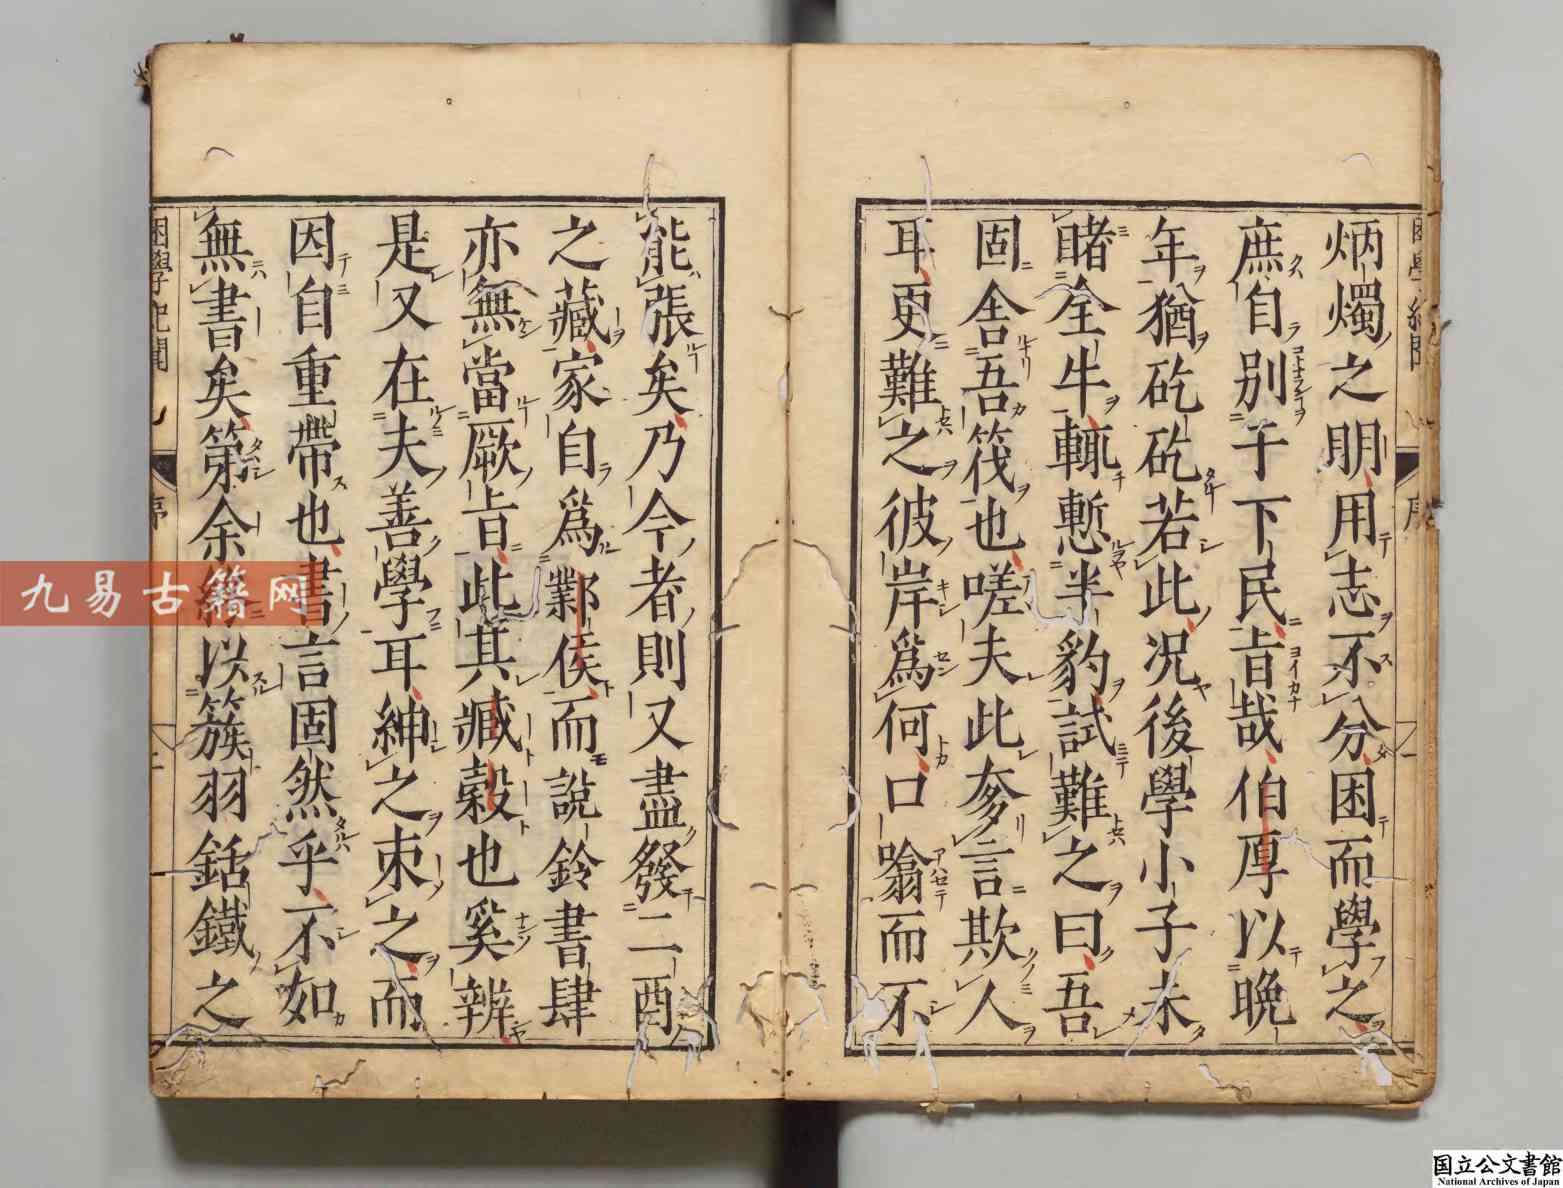 炳燭之明用志不分困而學之
庶自別于下民旨哉伯厚以晩
年猶矻矻若此況後學小子未
睹全牛輒慙半豹試難之曰吾
固舍吾筏也嗟夫此奓言欺人
耳更難之彼岸爲何口噏而不
能張矣乃今者則又盡發二酉
之藏家自爲鄴侯而説鈴書肆
亦無當厥旨此其臧穀也奚辨
是又在夫善學耳紳之束之而
因自重帶也書言固然乎不如
無書矣第余以簇羽銛鐵之
困學紀聞
序
序
九易古籍网
国立公文書館
National Archives of Japan